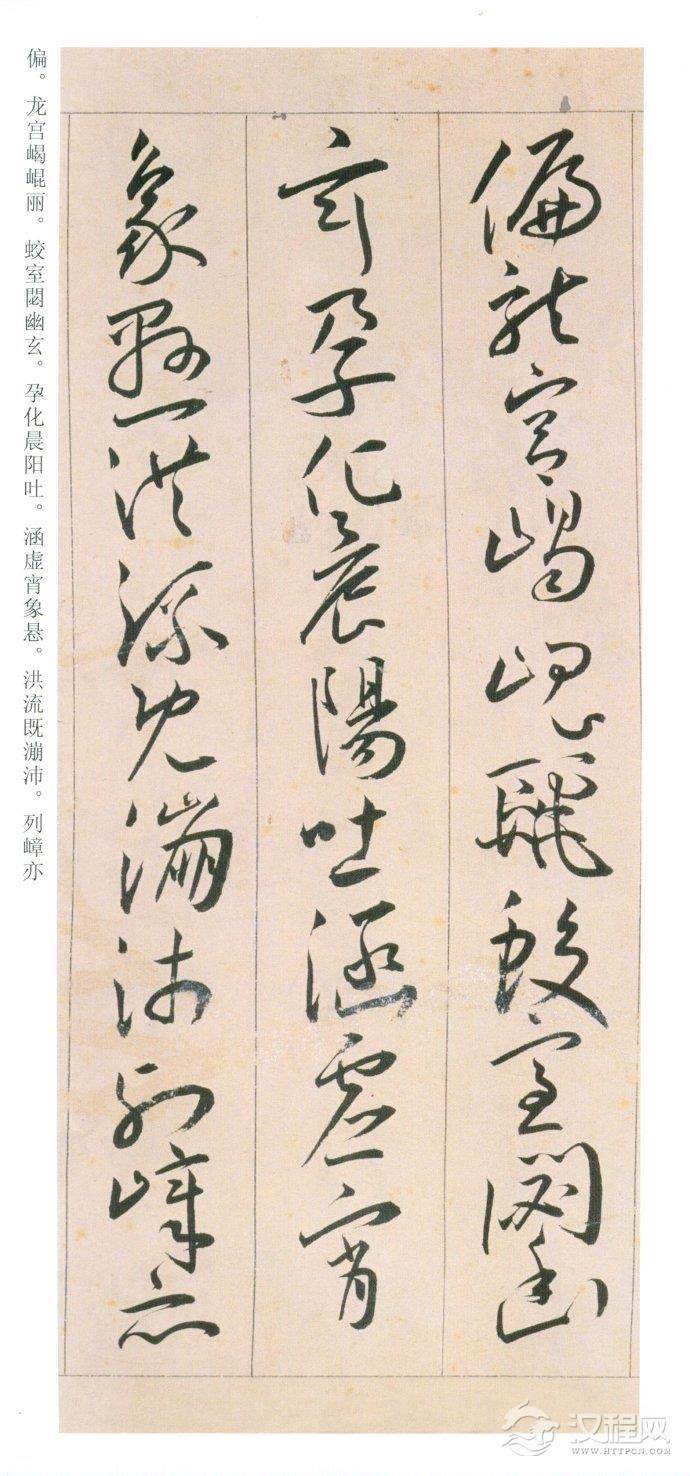 偏龙宫嵑崐丽蛟室閟幽
玄孕化晨陽吐涵虚宵
象悬洪流既漰沛列嶂亦
偏。龙宫嵑崐丽。蛟室閟幽玄。孕化晨阳吐。涵虚宵象悬。洪流既漰沛。列嶂亦
汉程网
WWW.HTTPCN.COM